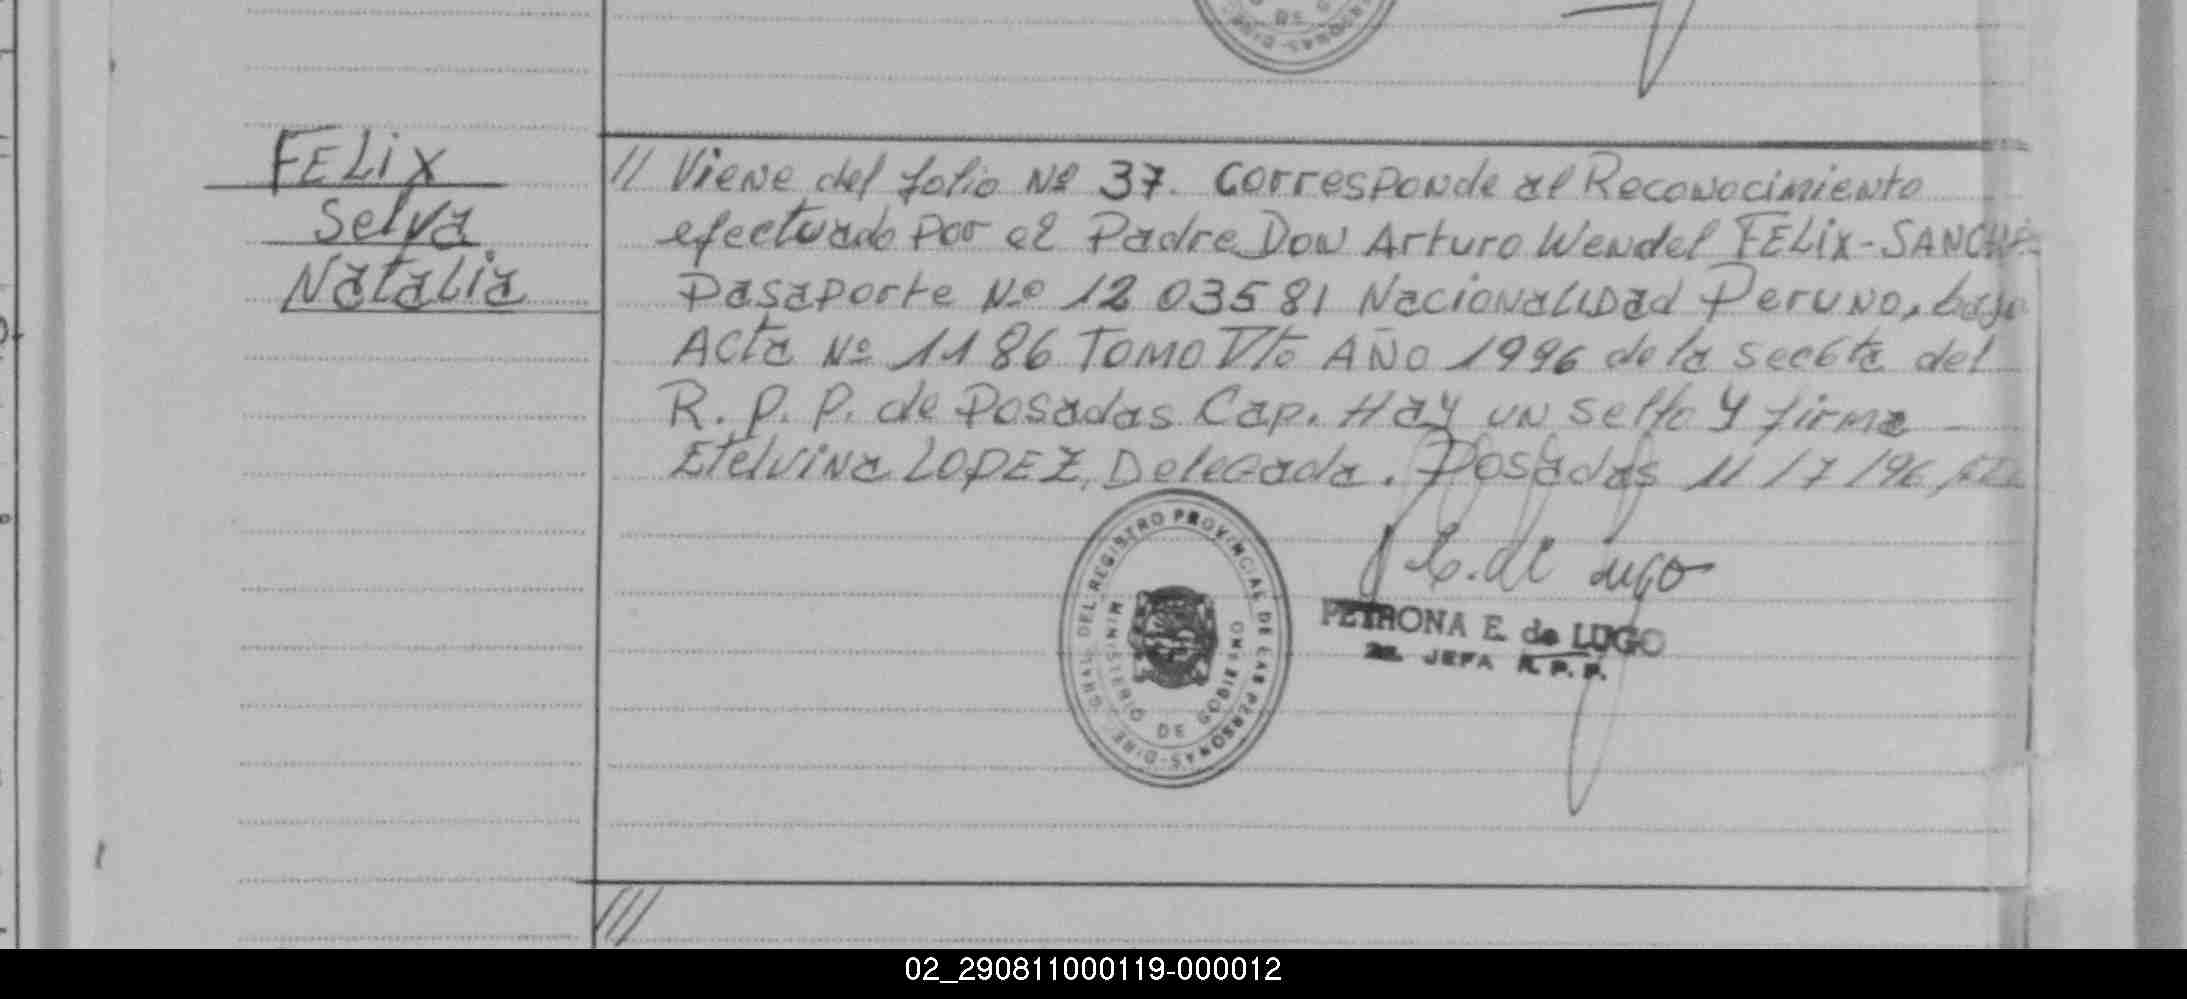 FELiX
Selva
Natalia
// Viene del folio Nº 37. Corresponde al Reconocimiento
efectuado por el Padre Don Arturo Wendel FELiX-SANCHE
Pasaporte Nº 12 03581 Nacionalidad Peruno, bajo
Acta Nº 1186 Tomo Vto AÑO 1996 de la sec6ta del
R. P. P. de Posadas Cap. Hay un sello y firma
Etelvina LOPEZ, Delegada. Posadas 11/7/96
E. de Lugo
PETRONA E. de LUGO
2a. JEFA R. P. P.
DIRE. GRAL. DEL REGISTRO PROVINCIAL DE LAS PERSONAS
MINISTERIO DE GOBIERNO
///
02_290811000119-000012